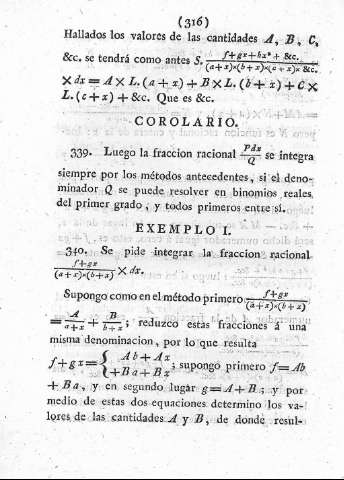 (316)
Hallados los valores de las cantidades A, B, C,
&c. se tendrá como antes S. f+gx+hx²+&c. / (a+x)×(b+x)×(c+x)×&c.
×dx=A×L.(a+x)+B×L.(b+x)+C×
L.(c+x)+&c. Que es &c.
COROLARIO.
339. Luego la fraccion racional Pdx/Q se integra
siempre por los métodos antecedentes, si el deno-
minador Q se puede resolver en binomios reales
del primer grado, y todos primeros entre sí.
EXEMPLO I.
340. Se pide integrar la fraccion racional
f+gx / (a+x)×(b+x) × dx.
Supongo como en el método primero f+gx / (a+x)×(b+x)
= A/a+x + B/b+x; reduzco estas fracciones á una
misma denominacion, por lo que resulta
f+gx={ Ab+Ax +Ba+Bx ; supongo primero f=Ab
+Ba, y en segundo lugár g=A+B; y por
medio de estas dos equaciones determino los va-
lores de las cantidades A y B, de donde resul-